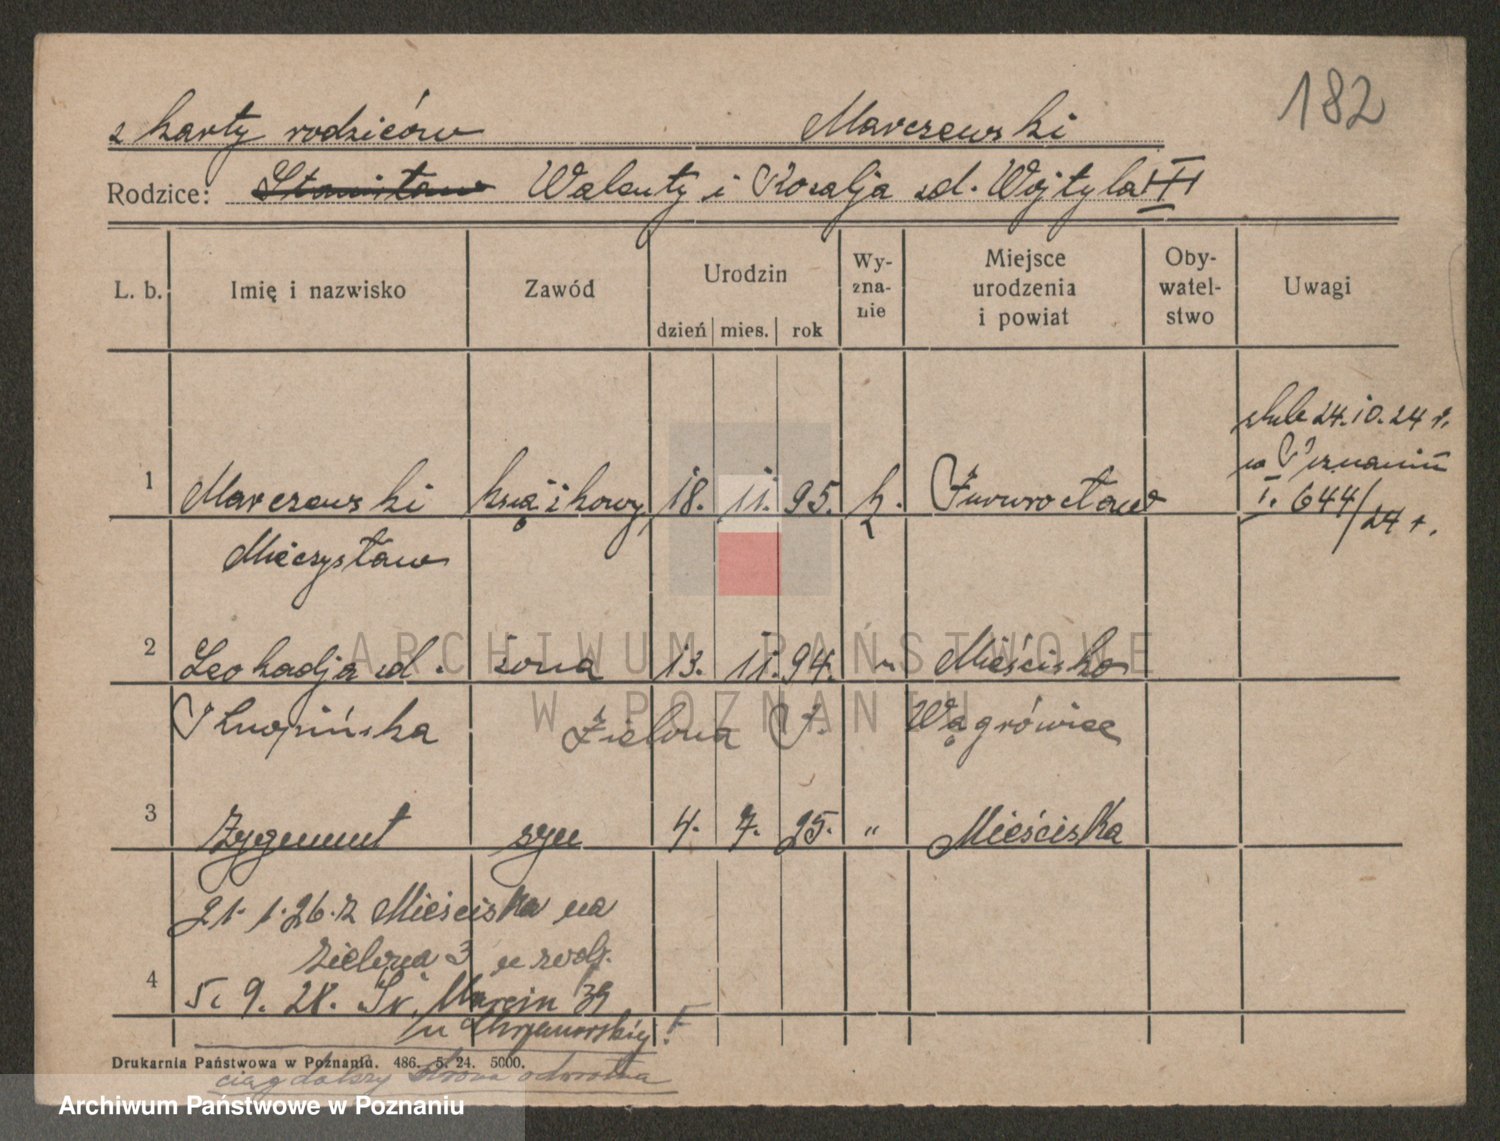 182
z karty rodziców Marczewski
Rodzice: Stanisław Walenty i Rozalja zd. Wojtyla III
L. b. Imię i nazwisko Zawód Urodzin dzień mies. rok Wy-zna-nie Miejsce urodzenia i powiat Oby-watel-stwo Uwagi
ślub 24.10.24 r.
w Poznaniu
I. 644/24 r.
1 Marczewski książkowy 18. 11. 95. k. Inowrocław
Mieczysław
2 Leokadja zd. żona 13. 11. 94. " Mieścisko
Zielona Wągrówiec
3 Zygmunt syn 4. 7. 25. " Mieściska
21. 1. 26. z Mieściska na
Zielona 3 u rodz.
4 5. 9. 28. Św. Marcin 39
u
Drukarnia Państwowa w Poznaniu. 486. 5. 24. 5000.
ciąg dalszy strona odwrotna
ARCHIWUM PAŃSTWOWE
W POZNANIU
Archiwum Państwowe w Poznaniu